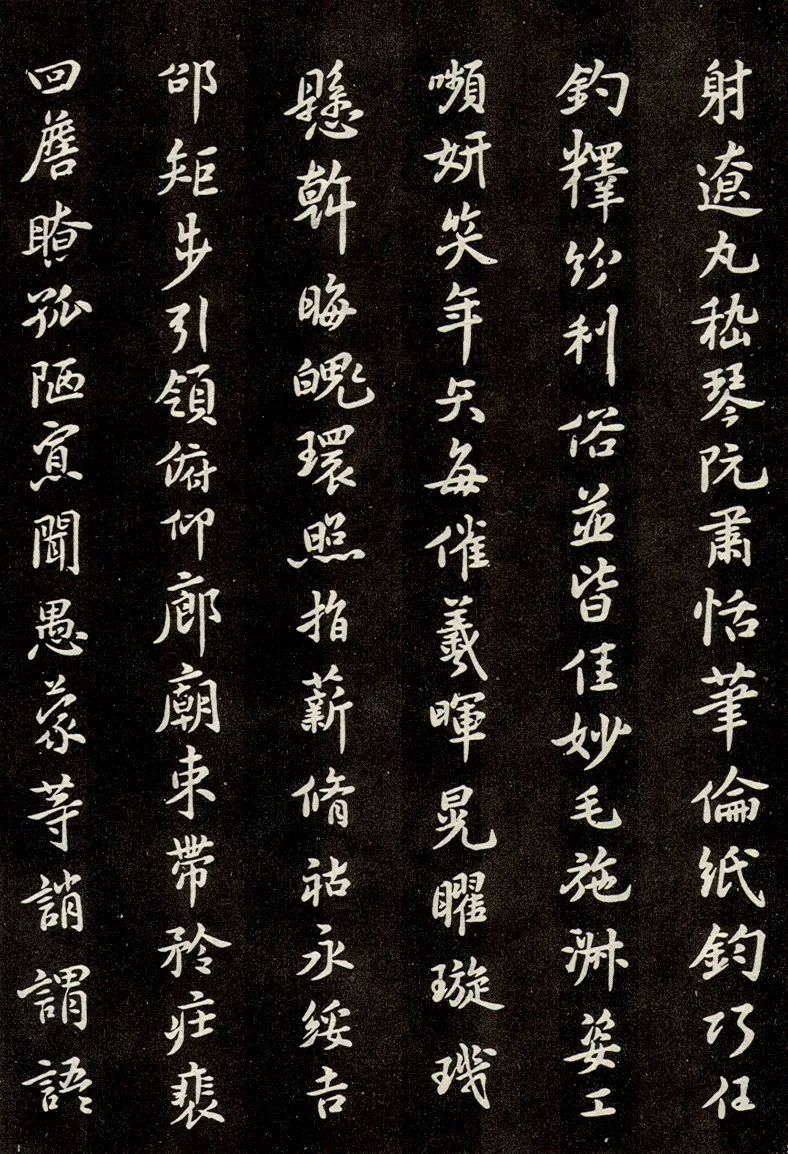 射遼丸嵇琴阮肅恬筆倫紙鈞巧任
釣釋紛利俗並皆佳妙毛施淑姿工
嚬妍笑年矢每催羲暉晃曜璇璣
懸斡晦魄環照指薪脩祜永綏吉
邵矩步引領俯仰廊廟束帶矜莊裵
回詹瞭孤陋寡聞愚蒙等誚謂語